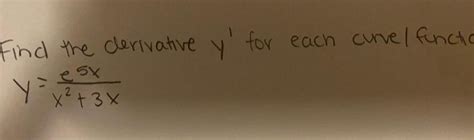 Find the derivative y' for each curve/functo
y = e^5x / x² + 3x